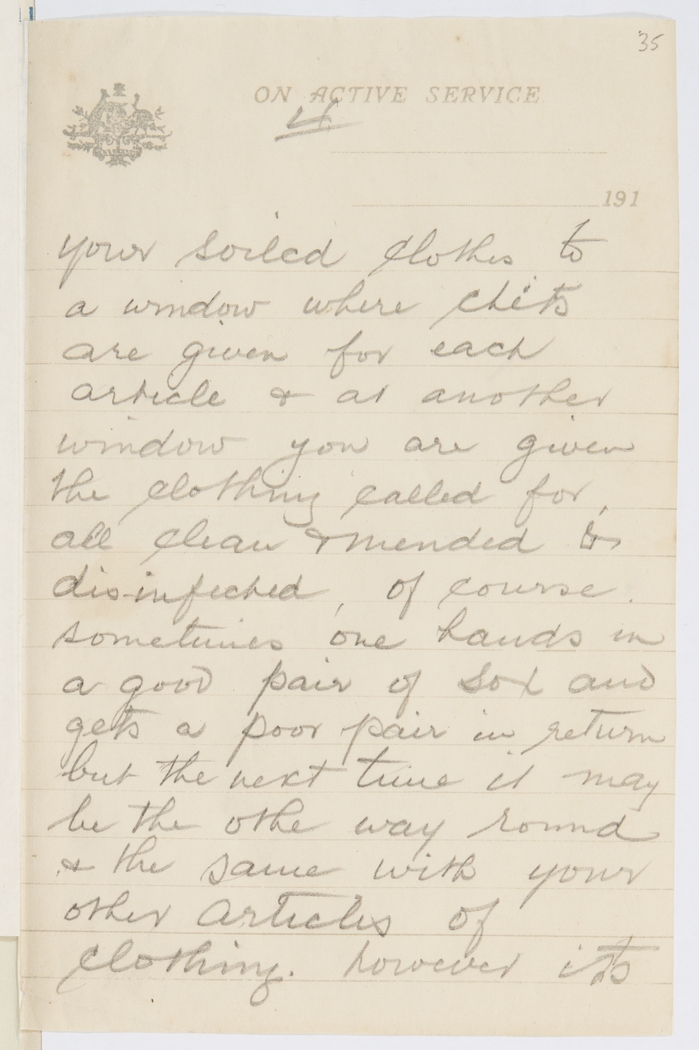 35
ON ACTIVE SERVICE
4
191
your soiled clothes to
a window where chits
are given for each
article & at another
window you are given
the clothing called for,
all clean & mended &
dis-infected, of course.
sometimes one hands in
a good pair of sox and
gets a poor pair in return
but the next time it may
be the othe way round
& the same with your
other articles of
clothing. however its